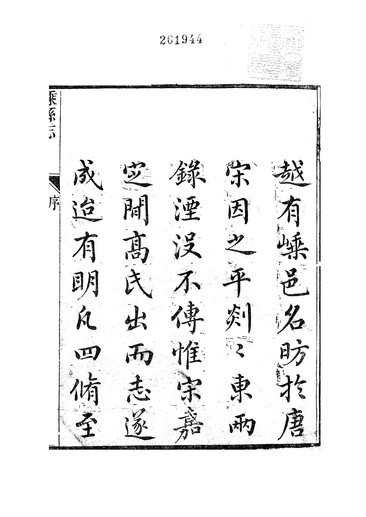 261944
越有嵊邑名昉扵唐
宋因之平剡〻東兩
錄湮没不傳惟宋嘉
㝎間髙氏出而志遂
成迨有眀凡四脩至
嵊縣志
序